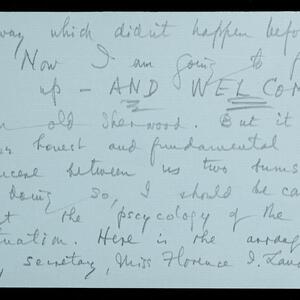 way which didn't happen befo
Now I am going to f
up - AND WELCOM
old Sherwood. But it
honest and fundamental
between us two sums
doing so, I should be ca
the pscycology of the
tuation. Here is the arrang
secretary, Miss Florence I. Laus